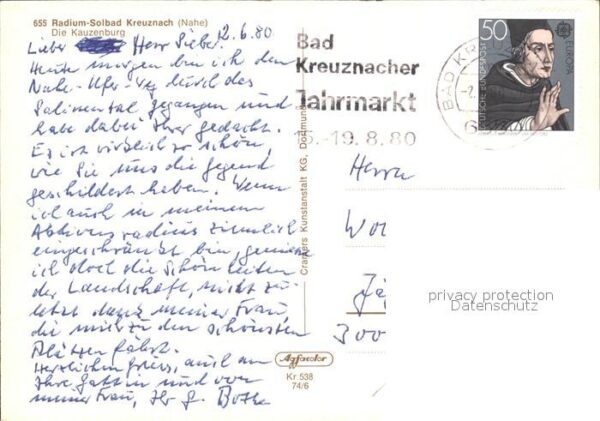 655 Radium-Solbad Kreuznach (Nahe)
Die Kauzenburg
2.6.80
Lieber Herr Sieber.
Heute morgen bin ich den
Nahe-Ufer-Weg durch das
Salinental gegangen und
habe dabei Ihrer gedacht.
Es ist wirklich so schön,
wie Sie uns die Gegend
geschildert haben. Wenn
ich auch in meinem
Aktionsradius ziemlich
eingeschränkt bin, geniesse
ich doch die Schönheiten
der Landschaft, nicht zu-
letzt dank meiner Frau,
die mich zu den schönsten
Plätzen fährt.
Herzlichen Gruss, auch an
Ihre Gattin und von
meiner Frau, Ihr G.
Bad
Kreuznacher
Jahrmarkt
15.-19.8.80
BAD KR
50
DEUTSCHE BUNDESPOST
EUROPA
Cramers Kunstanstalt KG, Dortmund
Herrn
300
Agfacolor
Kr. 538
74/6
privacy protection
Datenschutz